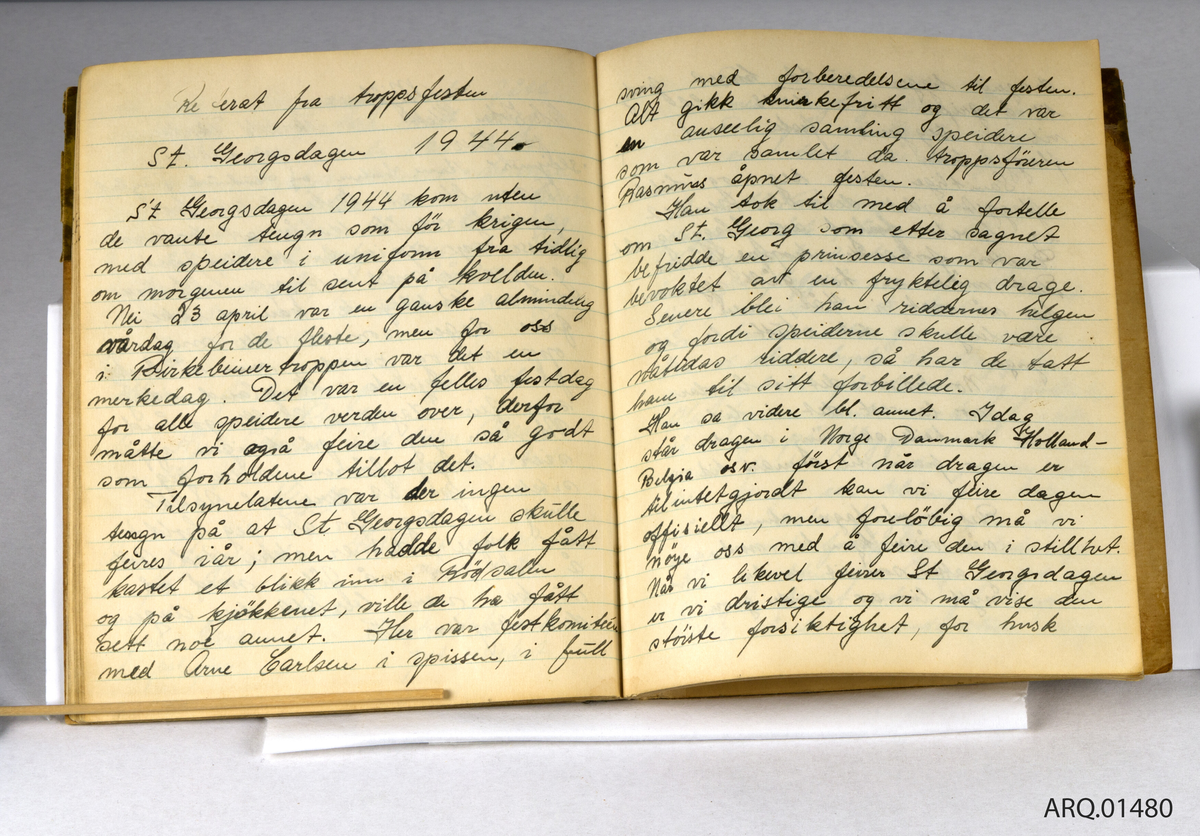 Re erat fra troppsfesten
St. Georgsdagen 1944.
St Georgsdagen 1944 kom uten
de vante tengn som för krigen,
med speidere i uniform fra tidlig
om morgenen til sent på kvelden.
Nei 23 april var en ganske almindelig
vårdag for de fleste, men for oss
i Birkebeinertroppen var det en
merkedag. Det var en felles festdag
for alle speidere verden over, derfor
måtte vi også feire den så godt
som forholdene tillot det.
Tilsynelatene var der ingen
tengn på at St. Georgsdagen skulle
feires iår; men hadde folk fått
kastet et blikk inn i
og på kjökkenet, ville de ha fått
sett noe annet. Her var festkomiteen
med Arne Carlsen i spissen, i full
sving med forberedelsene til festen.
Alt gikk knirkefritt og det var
en anseelig samling speidere
som var samlet da troppsföreren
Rasmus åpnet festen.
Han tok til med å fortelle
om St. Georg som etter sagnet
befridde en prinsesse som var
bevoktet av en fryktelig drage.
Senere blei han riddernes helgen
og fordi speiderne skulle være
nåtidas riddere, så har de tatt
ham til sitt forbillede.
Han sa videre bl. annet. Idag
står dragen i Norge Danmark Holland-
Belgia osv. först når dragen er
tilintetgjordt kan vi feire dagen
offisiellt, men forelöbig må vi
nöye oss med å feire den i stillhet.
Når vi likevel feirer St Georgsdagen
er vi dristige og vi må vise den
störste forsiktighet, for husk
ARQ.01480